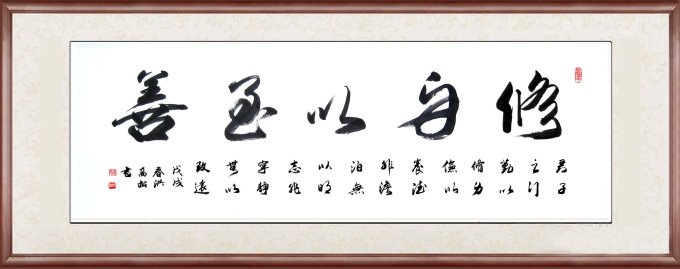 修身以至善
君子
之行
勤以
修身
儉以
養德
非澹
泊無
以明
志非
寧静
無以
致遠
戊戌
春洪
高松
書